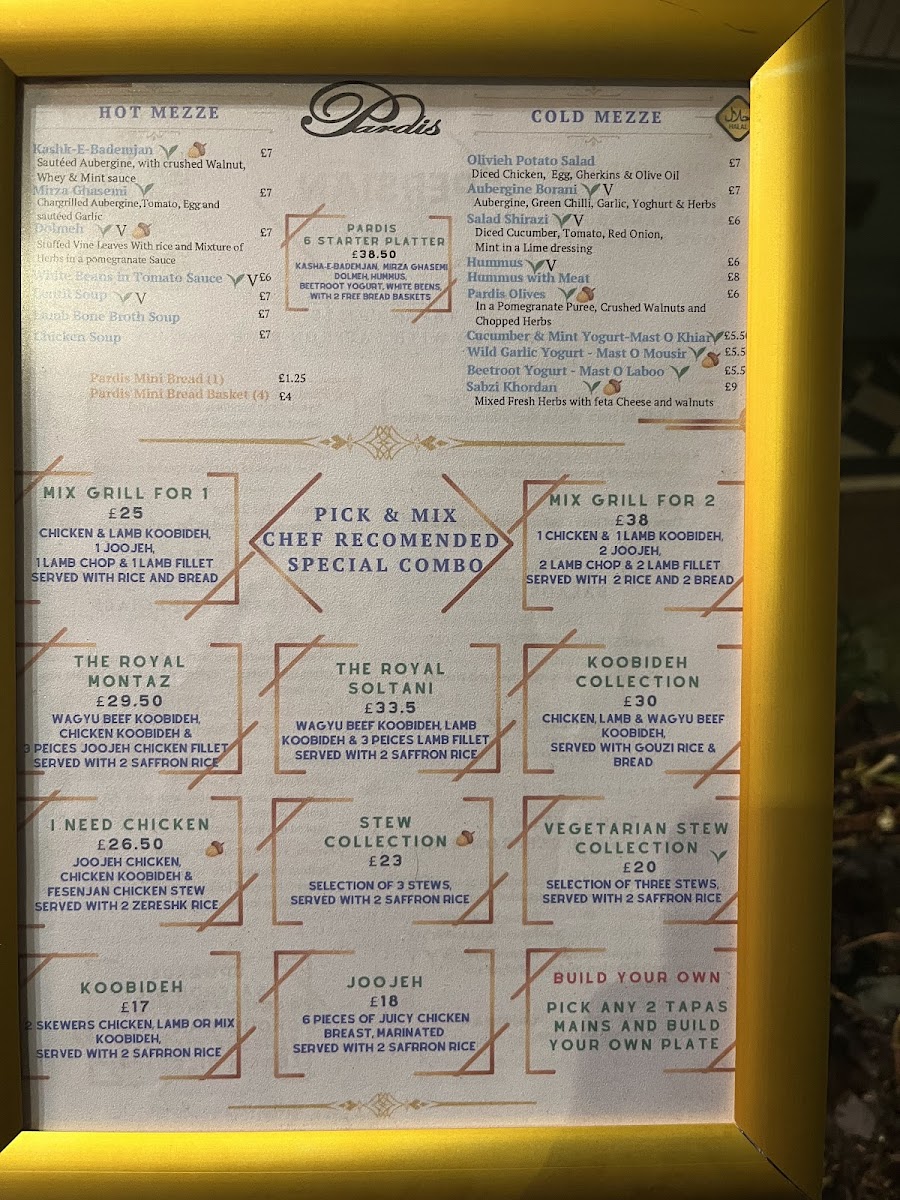 Pardis
HALAL
HOT MEZZE
Kashk-E-Bademjan £7
Sautéed Aubergine, with crushed Walnut,
Whey & Mint sauce
Mirza Ghasemi £7
Chargrilled Aubergine,Tomato, Egg and
sautéed Garlic
Dolmeh V £7
Stuffed Vine Leaves With rice and Mixture of
Herbs in a pomegranate Sauce
White Beans in Tomato Sauce V £6
Lentil Soup V £7
Lamb Bone Broth Soup £7
Chicken Soup £7
Pardis Mini Bread (1) £1.25
Pardis Mini Bread Basket (4) £4
PARDIS
6 STARTER PLATTER
£38.50
KASHA-E-BADEMJAN, MIRZA GHASEMI
DOLMEH, HUMMUS,
BEETROOT YOGURT, WHITE BEENS,
WITH 2 FREE BREAD BASKETS
COLD MEZZE
Olivieh Potato Salad £7
Diced Chicken, Egg, Gherkins & Olive Oil
Aubergine Borani V £7
Aubergine, Green Chilli, Garlic, Yoghurt & Herbs
Salad Shirazi V £6
Diced Cucumber, Tomato, Red Onion,
Mint in a Lime dressing
Hummus V £6
Hummus with Meat £8
Pardis Olives £6
In a Pomegranate Puree, Crushed Walnuts and
Chopped Herbs
Cucumber & Mint Yogurt-Mast O Khiar £5.5
Wild Garlic Yogurt - Mast O Mousir £5.5
Beetroot Yogurt - Mast O Laboo £5.5
Sabzi Khordan £9
Mixed Fresh Herbs with feta Cheese and walnuts
MIX GRILL FOR 1
£25
CHICKEN & LAMB KOOBIDEH,
1 JOOJEH,
1 LAMB CHOP & 1 LAMB FILLET
SERVED WITH RICE AND BREAD
PICK & MIX
CHEF RECOMENDED
SPECIAL COMBO
MIX GRILL FOR 2
£38
1 CHICKEN & 1 LAMB KOOBIDEH,
2 JOOJEH,
2 LAMB CHOP & 2 LAMB FILLET
SERVED WITH 2 RICE AND 2 BREAD
THE ROYAL
MONTAZ
£29.50
WAGYU BEEF KOOBIDEH,
CHICKEN KOOBIDEH &
3 PEICES JOOJEH CHICKEN FILLET
SERVED WITH 2 SAFFRON RICE
THE ROYAL
SOLTANI
£33.5
WAGYU BEEF KOOBIDEH, LAMB
KOOBIDEH & 3 PEICES LAMB FILLET
SERVED WITH 2 SAFFRON RICE
KOOBIDEH
COLLECTION
£30
CHICKEN, LAMB & WAGYU BEEF
KOOBIDEH,
SERVED WITH GOUZI RICE &
BREAD
I NEED CHICKEN
£26.50
JOOJEH CHICKEN,
CHICKEN KOOBIDEH &
FESENJAN CHICKEN STEW
SERVED WITH 2 ZERESHK RICE
STEW
COLLECTION
£23
SELECTION OF 3 STEWS,
SERVED WITH 2 SAFFRON RICE
VEGETARIAN STEW
COLLECTION
£20
SELECTION OF THREE STEWS,
SERVED WITH 2 SAFFRON RICE
KOOBIDEH
£17
2 SKEWERS CHICKEN, LAMB OR MIX
KOOBIDEH,
SERVED WITH 2 SAFRRON RICE
JOOJEH
£18
6 PIECES OF JUICY CHICKEN
BREAST, MARINATED
SERVED WITH 2 SAFRRON RICE
BUILD YOUR OWN
PICK ANY 2 TAPAS
MAINS AND BUILD
YOUR OWN PLATE